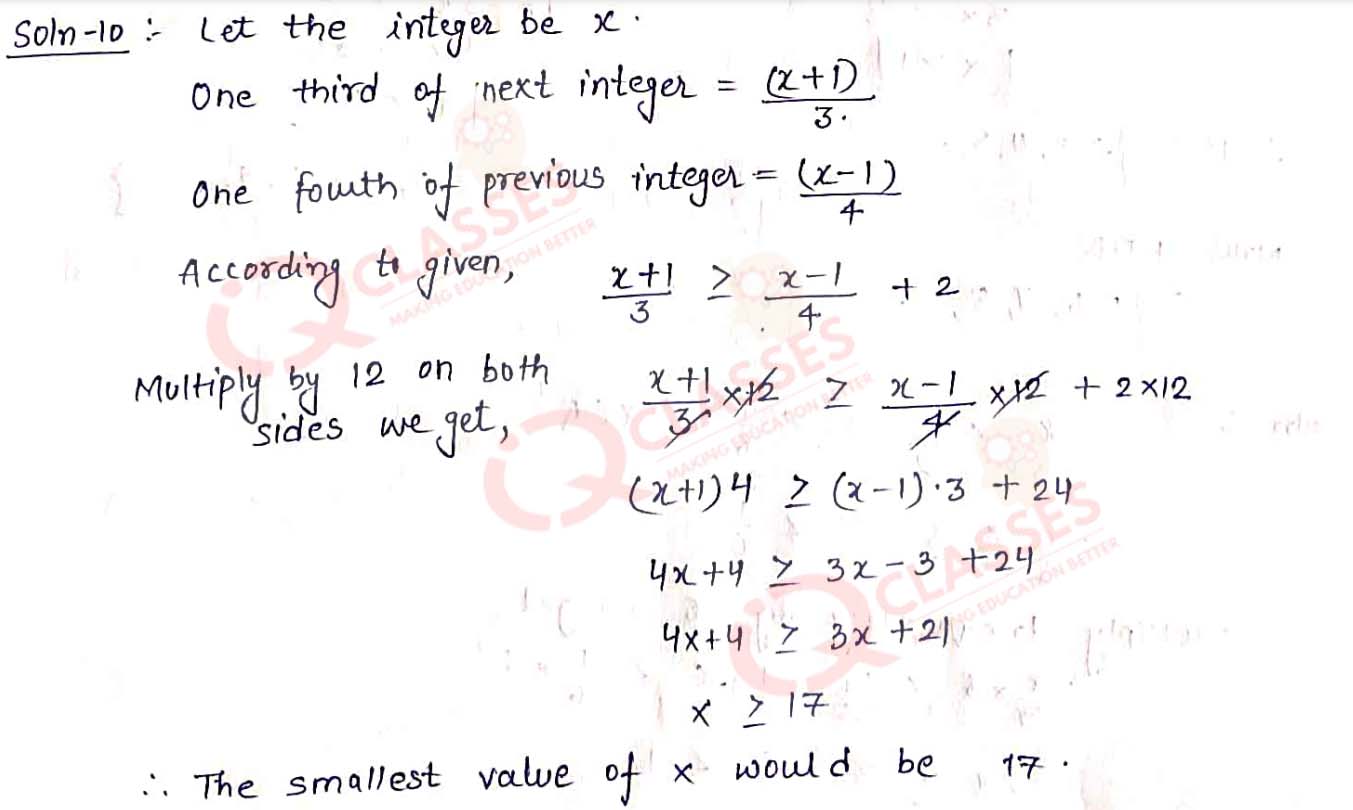 Soln-10 :- Let the integer be x.
One third of next integer = (x+1)/3.
One fourth of previous integer = (x-1)/4
According to given, x+1/3 ≥ x-1/4 + 2
Multiply by 12 on both sides we get, x+1/3 ×12 ≥ x-1/4 ×12 + 2×12
(x+1)4 ≥ (x-1)·3 + 24
4x+4 ≥ 3x-3 +24
4x+4 ≥ 3x +21
x ≥ 17
∴ The smallest value of x would be 17.
CLASSES
MAKING EDUCATION BETTER
CLASSES
MAKING EDUCATION BETTER
CLASSES
MAKING EDUCATION BETTER